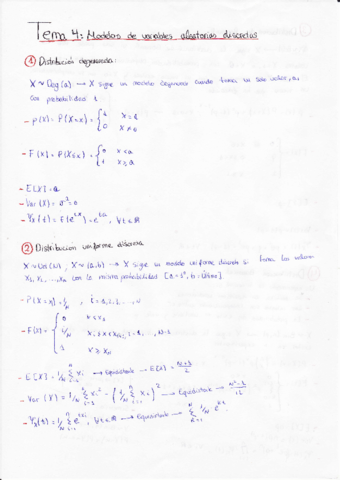 Tema 4: Modelos de variables aleatorias discretas
① Distribución degenerada:
X ~ Deg(a) → X sigue un modelo degenerado cuando toma un solo valor, a,
con probabilidad 1.
- P(X) = P(X=x) = { 1 x=a
0 x≠a
- F(X) = P(X≤x) = { 0 x<a
1 x≥a
- E[X] = a
- Var(X) = σ²=0
(t) = E(e^tx) = e^ta, ∀t∈ℝ
② Distribución uniforme discreta
X sigue un modelo uniforme discreto si toma los valores
x₁, x₂, ..., xₙ con la misma probabilidad
- P(X=xᵢ) = 1/N, i=1,2,...,N
- F(x) = { 0 x<x₁
i/N xᵢ≤x<xᵢ₊₁, i=1,...,N-1
1 x≥x_N
- E[X] = 1/N Σ xᵢ → Equidistante → E[X] = (N+1)/2
- Var(X) = 1/N Σ xᵢ² - (1/N Σ xᵢ)² → Equidistante → (N²-1)/12
(t) = 1/N Σ e^txᵢ, ∀t∈ℝ → Equidistante → Σ 1/N e^ti